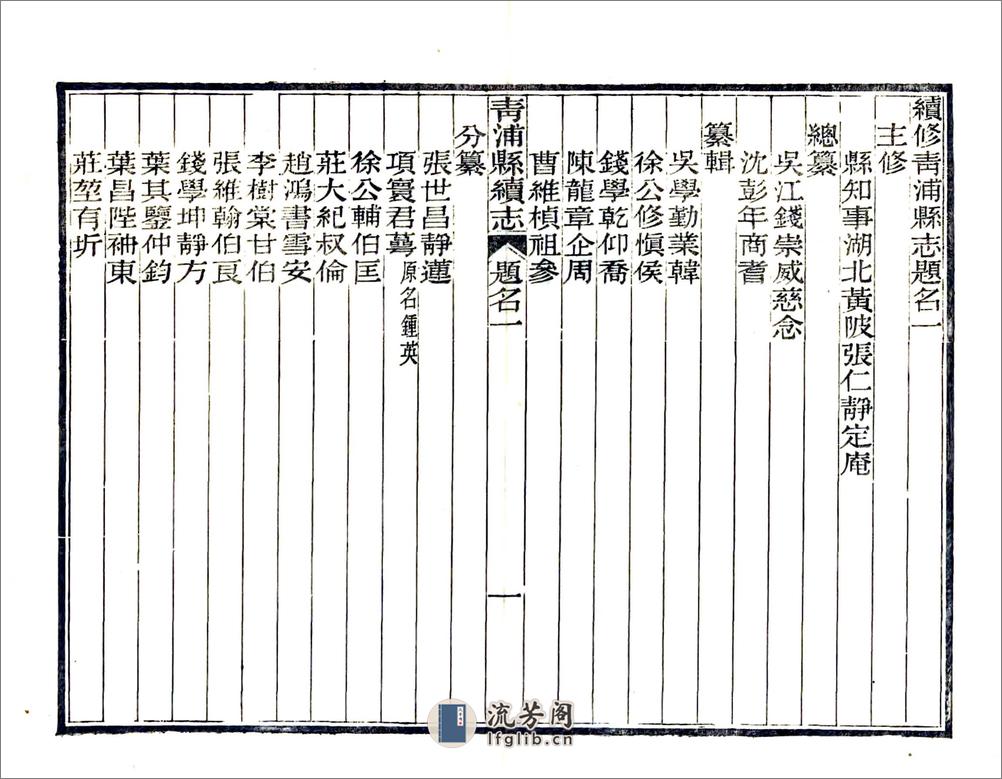 續修青浦縣志題名一
主修
縣知事湖北黃陂張仁靜定庵
總纂
吳江錢崇威慈念
沈彭年商耆
纂輯
吳學勤業韓
徐公修愼侯
錢學乾仰喬
陳龍章企周
曹維楨祖參
青浦縣續志 題名一 一
分纂
張世昌靜蓮
項寰君蕚原名鍾英
徐公輔伯匡
莊大紀叔倫
趙鴻書雪安
李樹棠甘伯
張維翰伯良
錢學坤靜方
葉其鑒仲鈞
葉昌陛袖東
莊堃有圻
流芳阁
lfglib.cn